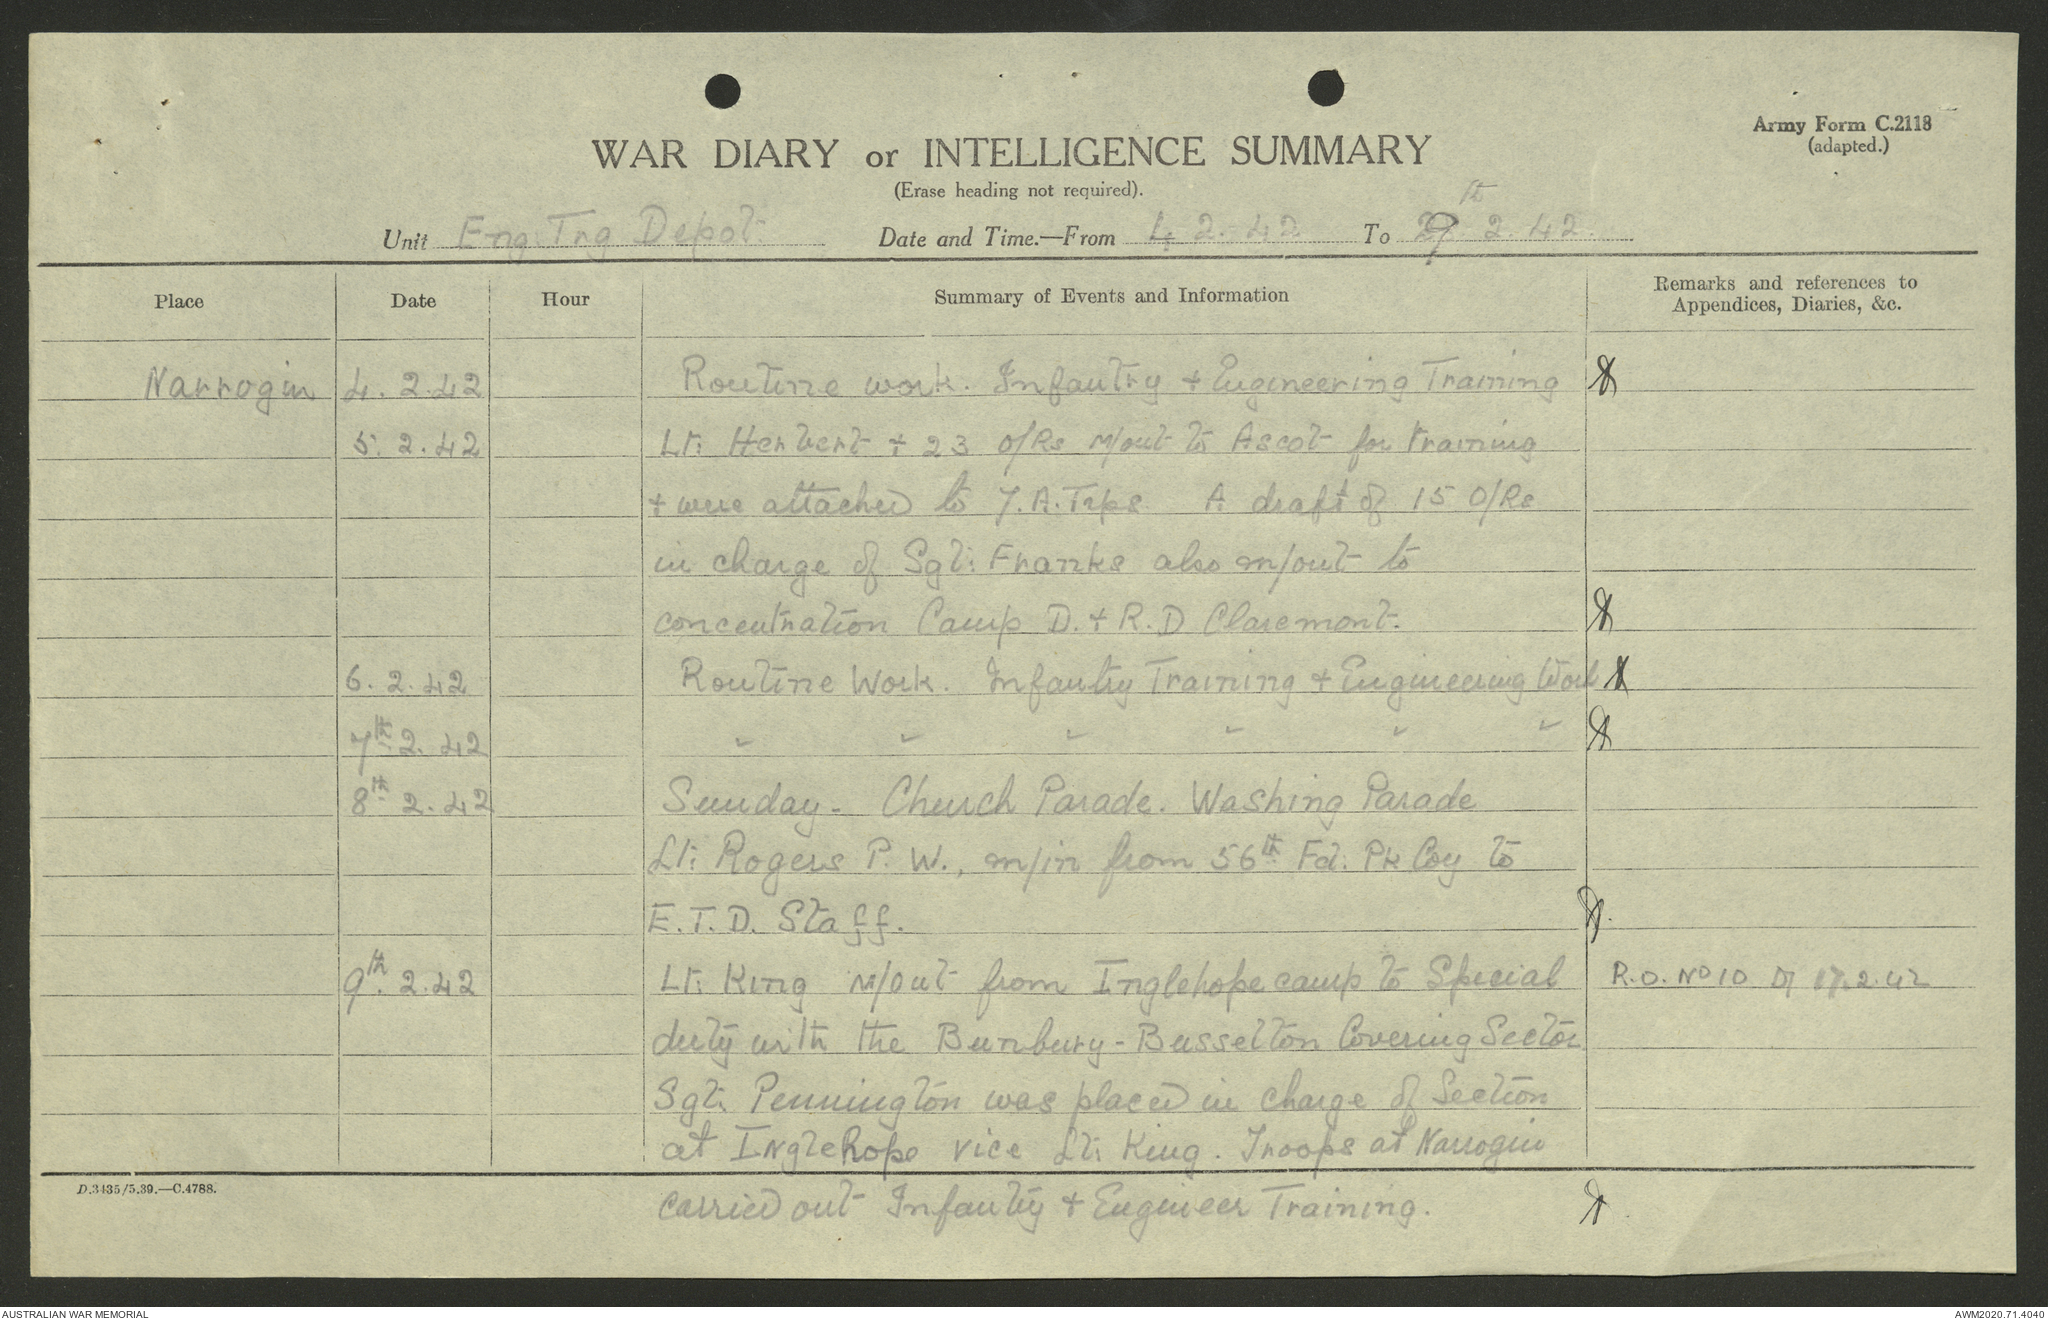 Army Form C.2118
(adapted.)
WAR DIARY or INTELLIGENCE SUMMARY
(Erase heading not required).
Unit Eng Trg Depot Date and Time.—From 4 2. 42 To 9th 2 42.
Place Date Hour Summary of Events and Information Remarks and references to
Appendices, Diaries, &c.
Narrogin 4. 2. 42 Routine work. Infantry + Engineering Training
5. 2. 42 Lt: Herbert + 23 O/Rs m/out to Ascot for training
+ were attached to 7. A. Trps A draft of 15 O/Rs
in charge of Sgt: Franks also m/out to
concentration Camp D. + R. D Claremont.
6. 2. 42 Routine Work. Infantry Training + Engineering Work
7th 2. 42 " " " " " "
8th 2. 42 Sunday - Church Parade. Washing Parade
Lt: Rogers P. W., m/in from 56th Fd. Pk Coy to
E. T. D. Staff.
9th. 2. 42 Lt: King m/out from Inglehope camp to Special R. O. No 10 D/ 17. 2. 42
duty with the Bunbury - Busselton Covering Sector
Sgt: Pennington was placed in charge of Section
at Inglehope vice Lt: King. Troops at Narrogin
D.3435/5.39.—C.4788.
carried out Infantry + Engineer Training.
AUSTRALIAN WAR MEMORIAL AWM2020.71.4040